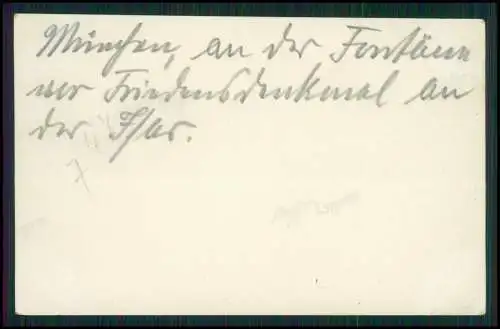 München, an der Fontäne
vor Friedensdenkmal an
der Isar.
7